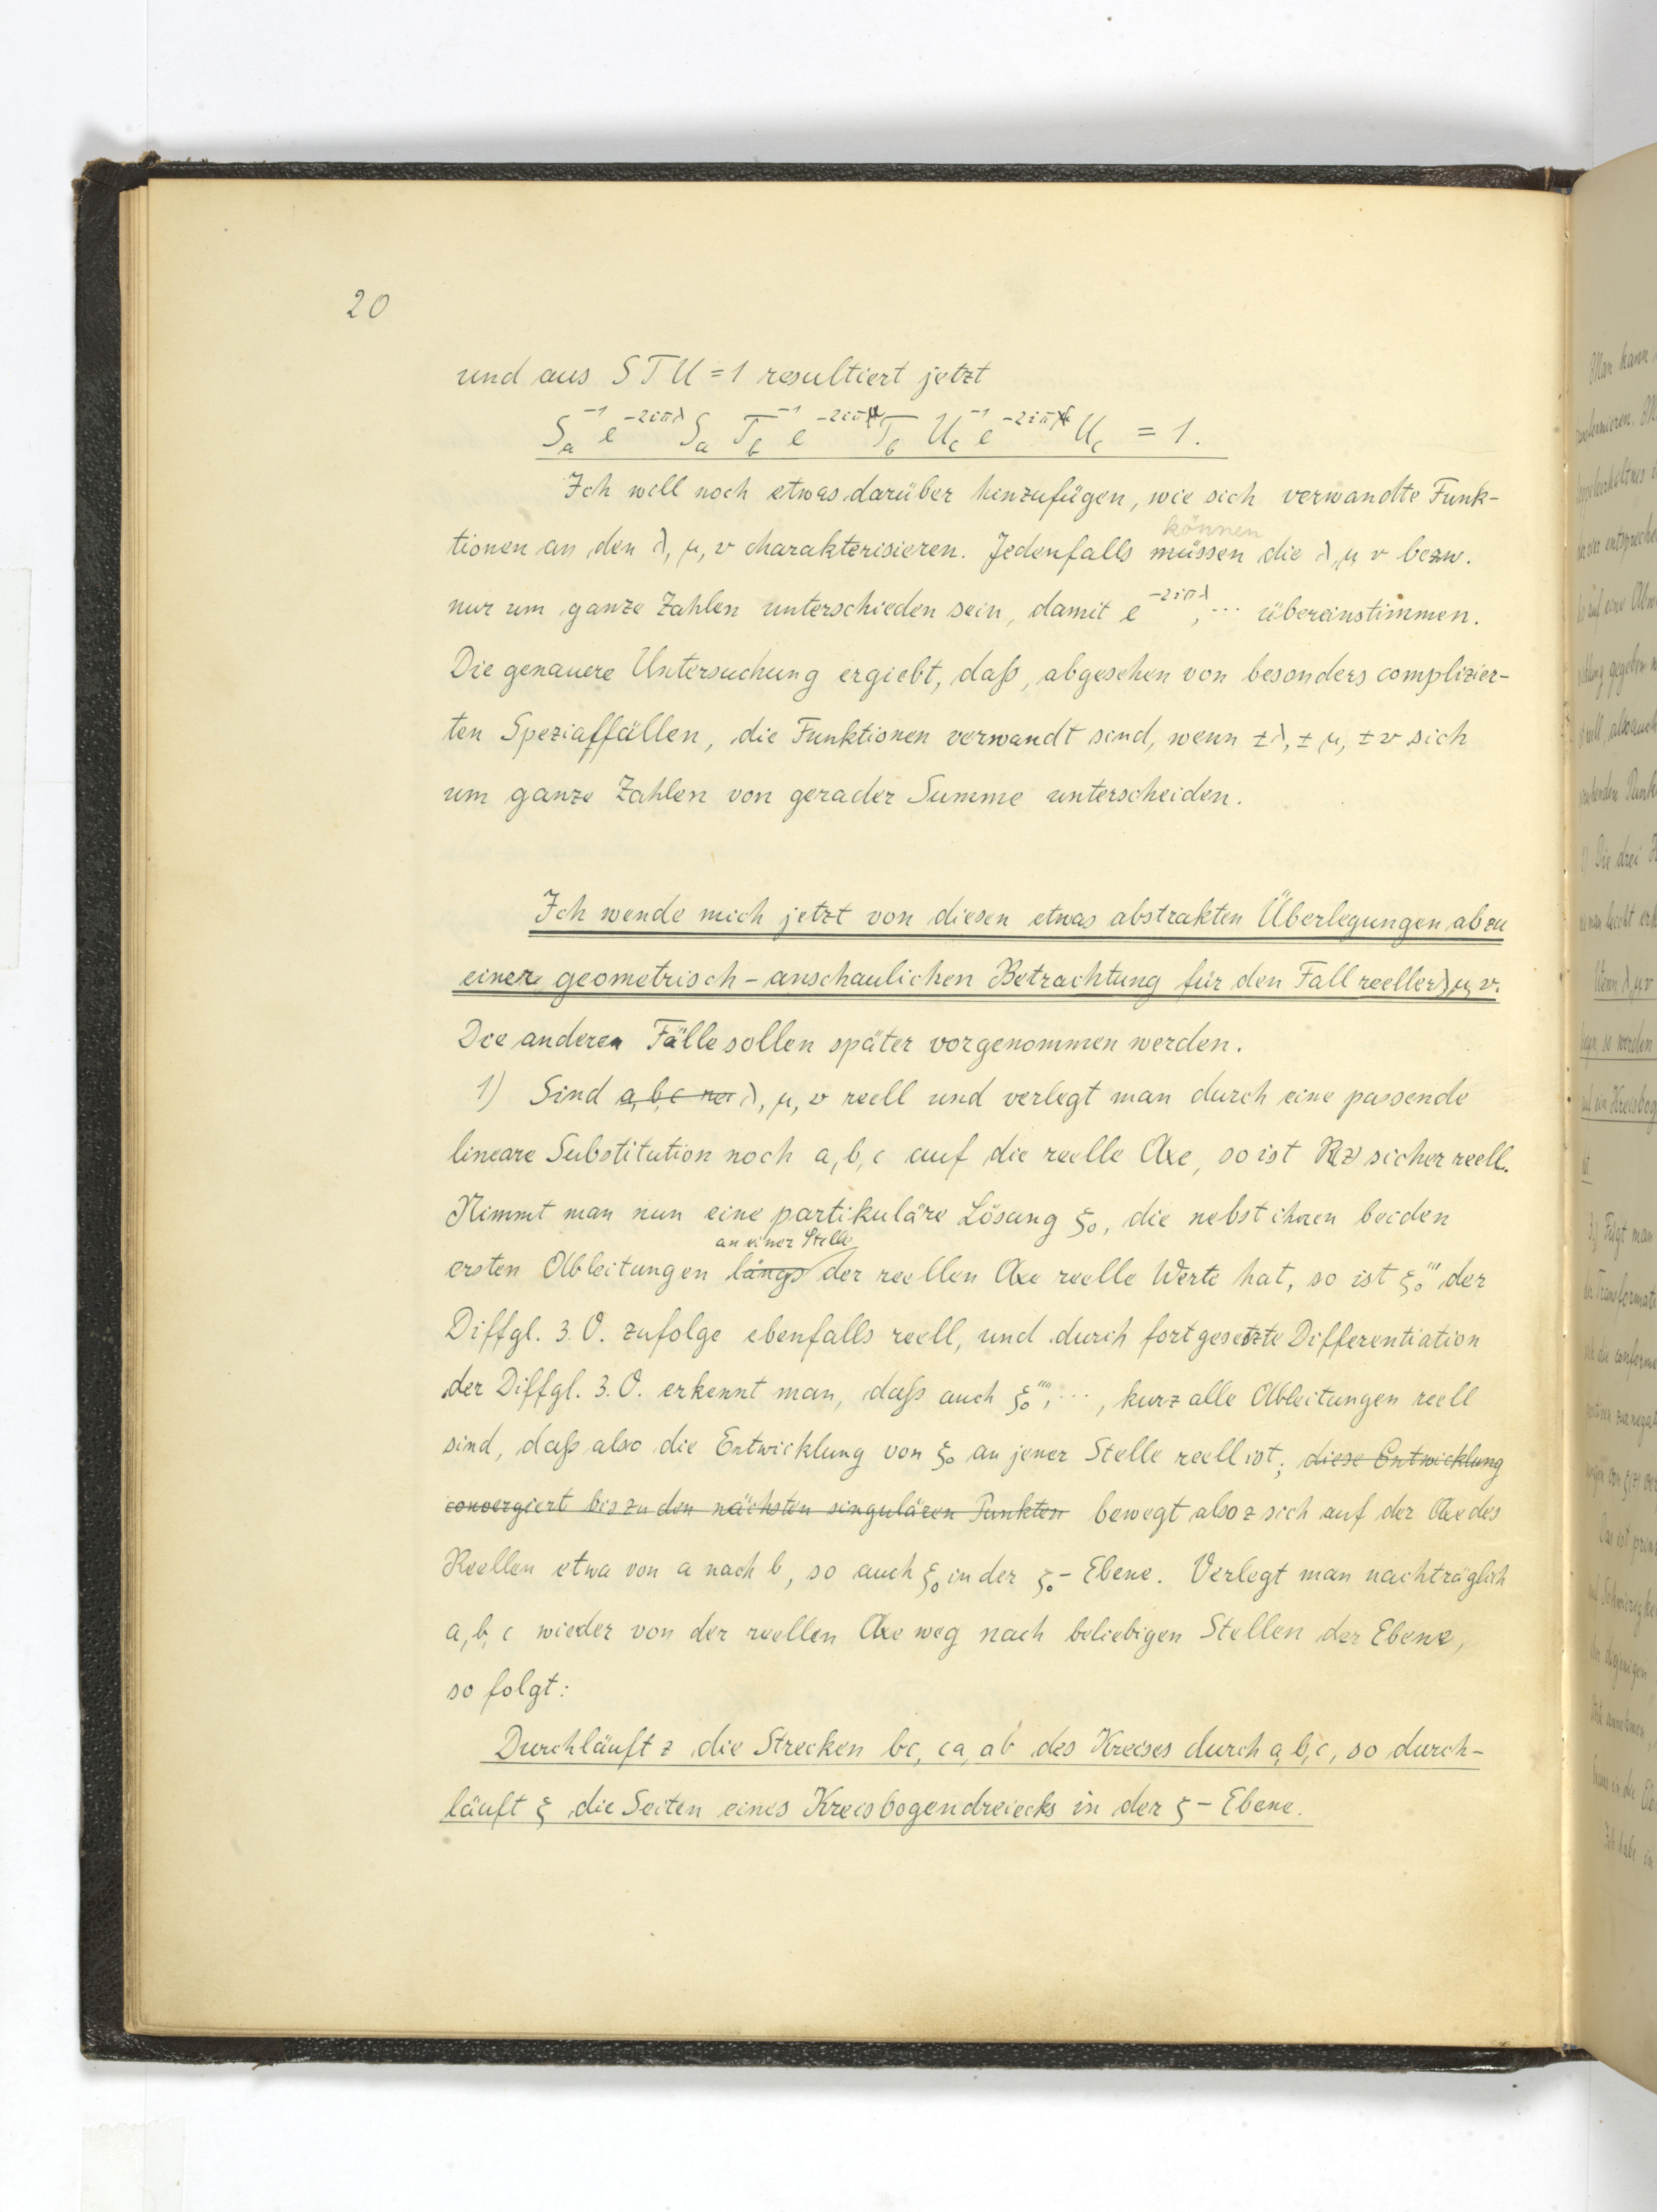 20
und aus STU = 1 resultiert jetzt
S_a^{-1} e^{-2iπλ} S_a T_b^{-1} e^{-2iπμ} T_b U_c^{-1} e^{-2iπν} U_c = 1.
Ich will noch etwas darüber hinzufügen, wie sich verwandte Funk-
können
tionen an den λ, μ, ν charakterisieren. Jedenfalls müssen die λ, μ, ν bezw.
nur um ganze Zahlen unterschieden sein, damit e^{-2iπλ}, ... übereinstimmen.
Die genauere Untersuchung ergiebt, daß, abgesehen von besonders complizier-
ten Spezialfällen, die Funktionen verwandt sind, wenn ±λ, ±μ, ±ν sich
um ganze Zahlen von gerader Summe unterscheiden.
Ich wende mich jetzt von diesen etwas abstrakten Überlegungen ab zu
einer geometrisch-anschaulichen Betrachtung für den Fall reeller λ, μ, ν.
Die anderen Fälle sollen später vorgenommen werden.
1) Sind a, b, c ree λ, μ, ν reell und verlegt man durch eine passende
lineare Substitution noch a, b, c auf die reelle Axe, so ist R(z) sicher reell.
Nimmt man nun eine partikuläre Lösung ξ₀, die nebst ihren beiden
an einer Stelle
ersten Ableitungen längs der reellen Axe reelle Werte hat, so ist ξ₀''' der
Diffgl. 3. O. zufolge ebenfalls reell, und durch fortgesetzte Differentiation
der Diffgl. 3. O. erkennt man, daß auch ξ₀'''', ..., kurz alle Ableitungen reell
sind, daß also die Entwicklung von ξ₀ an jener Stelle reell ist; diese Entwicklung
convergiert bis zu den nächsten singulären Punkten bewegt also z sich auf der Axe des
Reellen etwa von a nach b, so auch ξ₀ in der ξ₀-Ebene. Verlegt man nachträglich
a, b, c wieder von der reellen Axe weg nach beliebigen Stellen der Ebene,
so folgt:
Durchläuft z die Strecken bc, ca, ab des Kreises durch a, b, c, so durch-
läuft ξ die Seiten eines Kreisbogendreiecks in der ξ-Ebene.